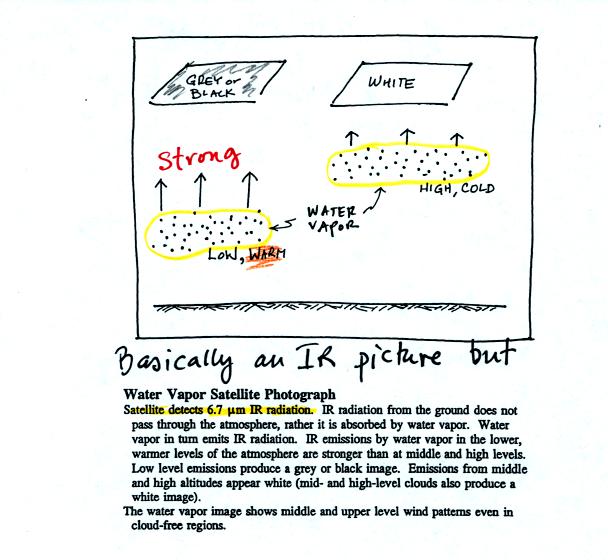 GREY or
BLACK
WHITE
Strong
HIGH, COLD
WATER
VAPOR
LOW, WARM
Basically an IR picture but
Water Vapor Satellite Photograph
Satellite detects 6.7 µm IR radiation. IR radiation from the ground does not
pass through the atmosphere, rather it is absorbed by water vapor. Water
vapor in turn emits IR radiation. IR emissions by water vapor in the lower,
warmer levels of the atmosphere are stronger than at middle and high levels.
Low level emissions produce a grey or black image. Emissions from middle
and high altitudes appear white (mid- and high-level clouds also produce a
white image).
The water vapor image shows middle and upper level wind patterns even in
cloud-free regions.